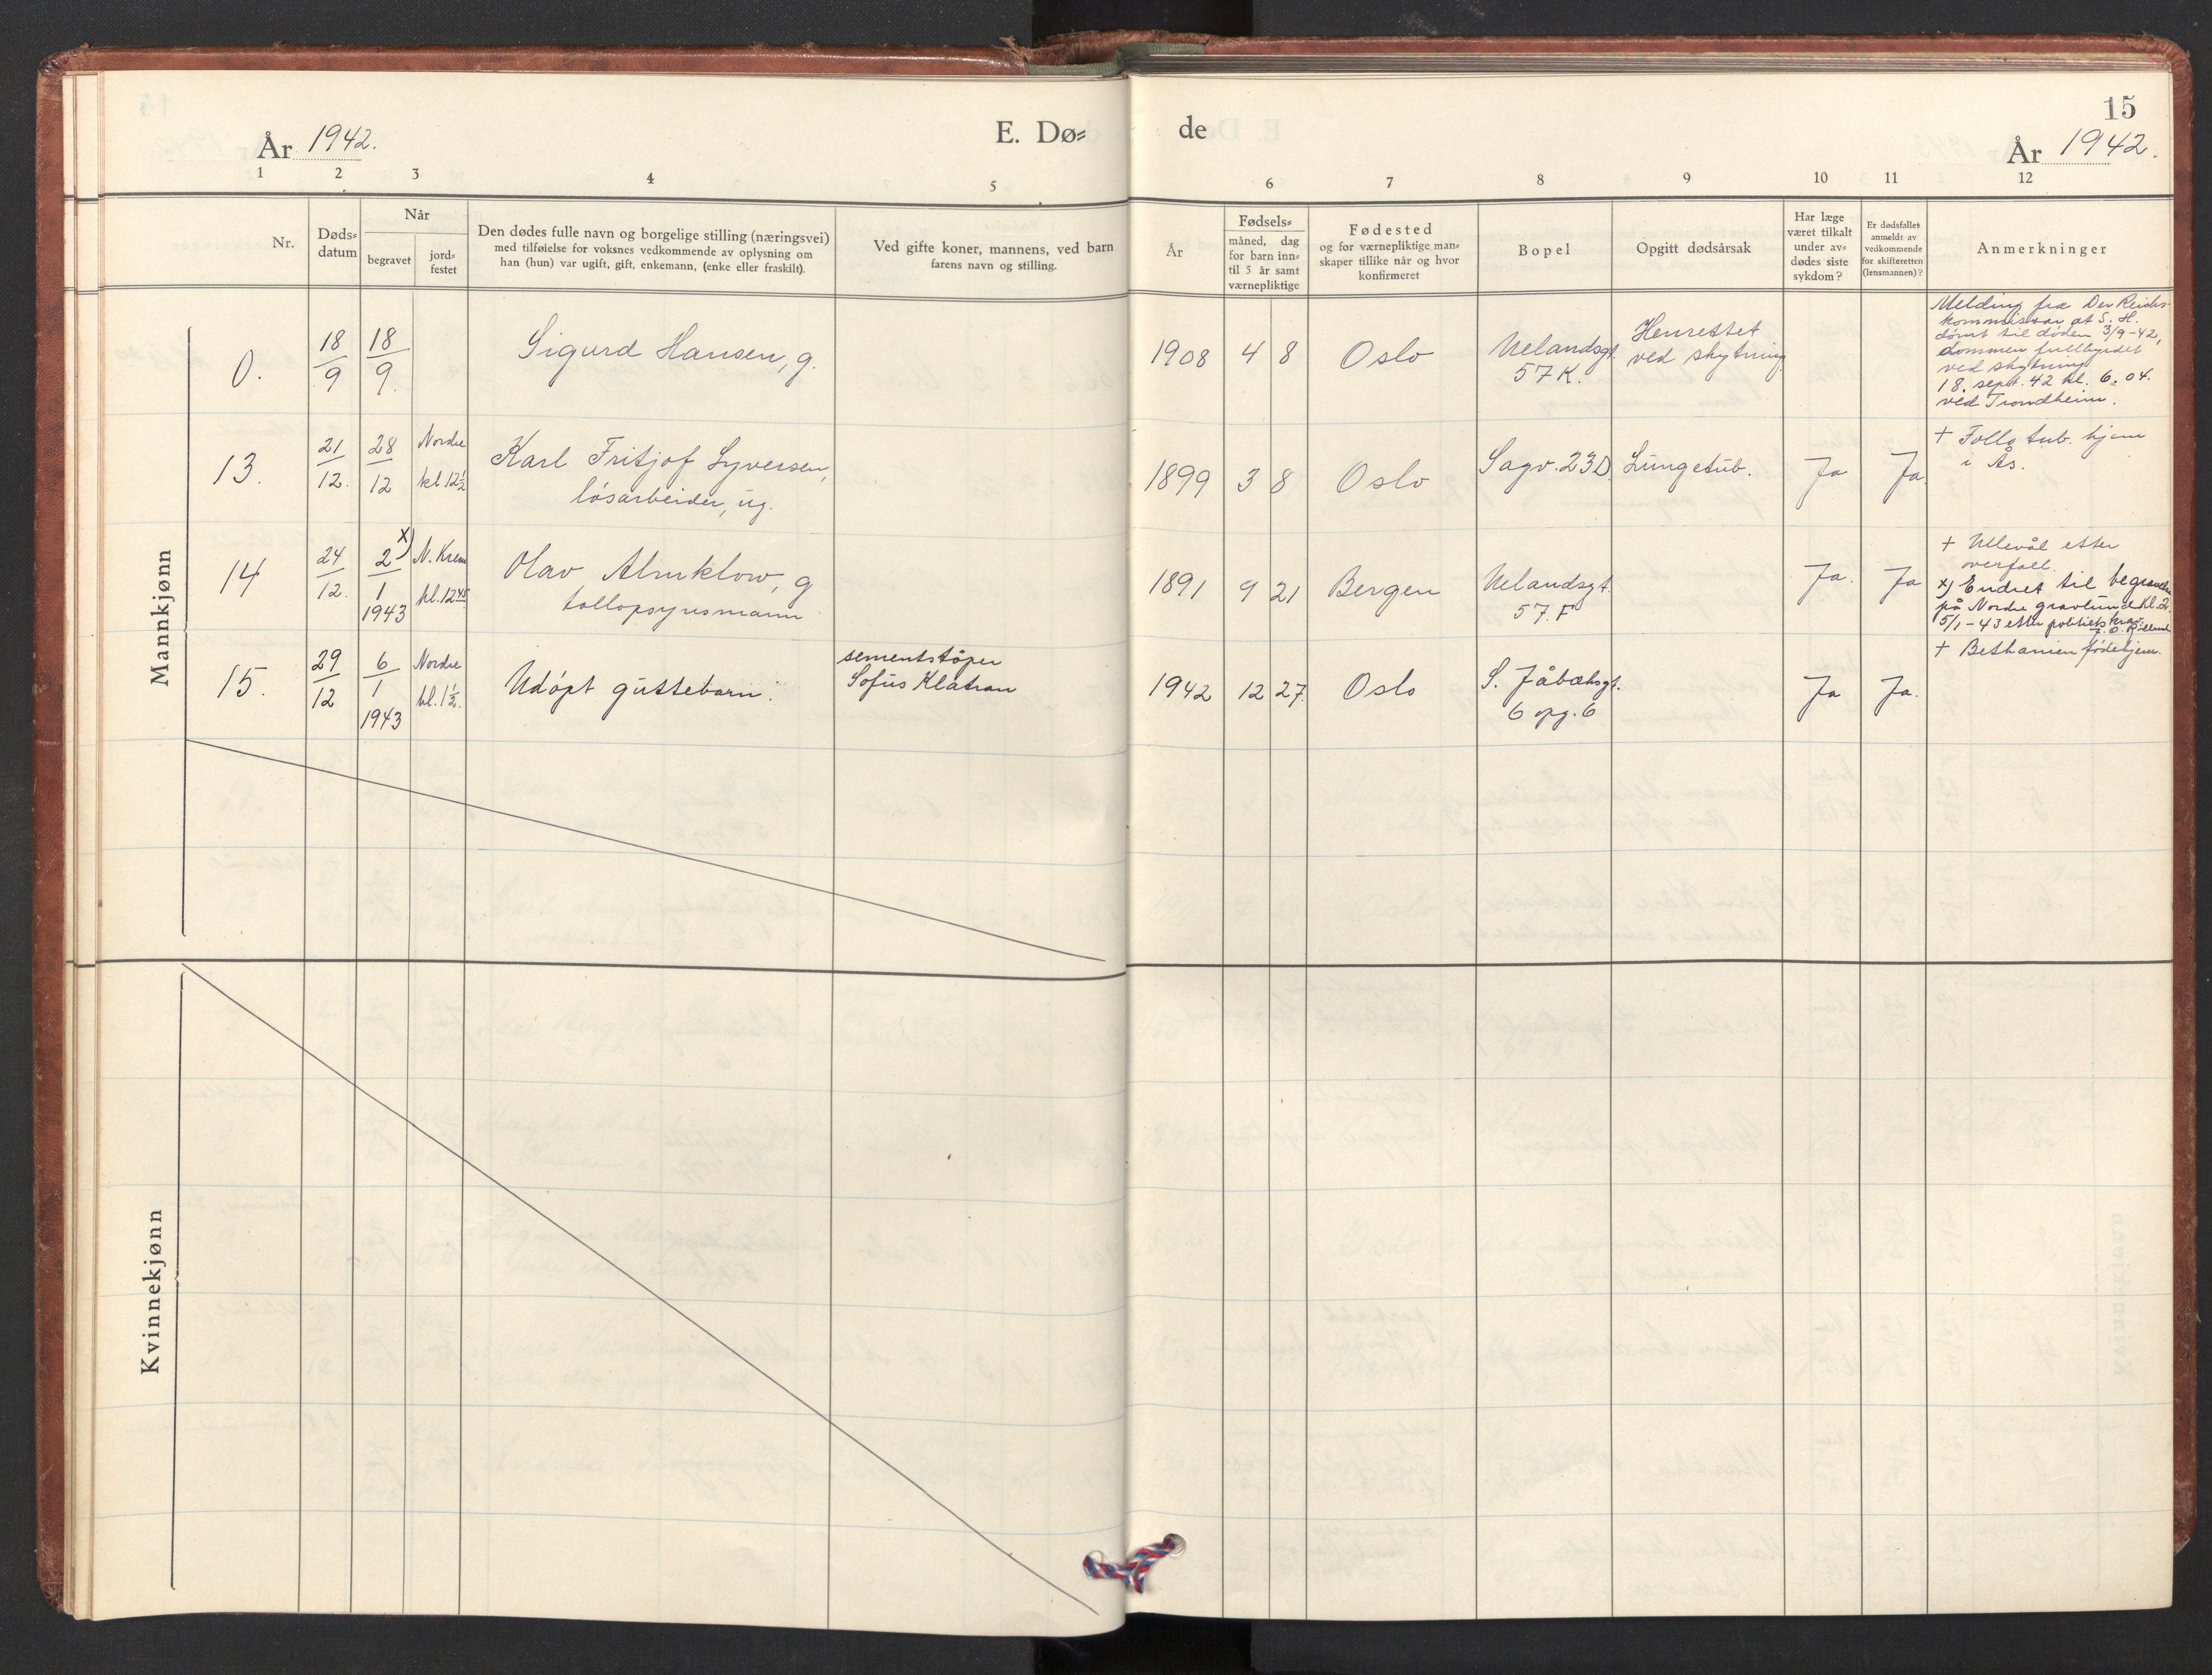 År 1942.
E. Dø=
de
15
År 1942.
1 2 3 4 5 6 7 8 9 10 11 12
Nr.
Døds=
datum
Når
begravet
jord=
festet
Den dødes fulle navn og borgelige stilling (næringsvei)
med tilføielse for voksnes vedkommende av oplysning om
han (hun) var ugift, gift, enkemann, (enke eller fraskilt).
Ved gifte koner, mannens, ved barn
farens navn og stilling.
År
Fødsels=
måned, dag
for barn inn=
til 5 år samt
værnepliktige
Fødested
og for værnepliktige man=
skaper tillike når og hvor
konfirmeret
Bopel
Opgitt dødsårsak
Har læge
været tilkalt
under av=
dødes siste
sykdom?
Er dødsfallet
anmeldt av
vedkommende
for skifteretten
(lensmannen)?
Anmerkninger
Mannkjønn
0.
18/9
18/9.
Sigurd Hansen, g.
1908
4 8
Oslo
Uelandsgt.
57 K.
Henrettet
ved skytning
Melding fra Der Reichs-
kommissar at S. H.
dømt til døden 3/9-42,
dommen fullbyrdet
ved skytning
18. sept. 42 kl. 6.04.
ved Trondheim.
13.
21/12.
28/12
Nordre
kl 12½
Karl Fritjof Syversen,
løsarbeider, ug.
1899
3 8
Oslo
Sagv. 23D
Lungetub.
Ja
Ja.
+ Follo tub. hjem
i Ås.
14
24/12.
x)
2/1
1943
N. Krem
kl. 12 45
Olav Almklow, g
tollopsynsmann
1891
9 21
Bergen
Uelandsgt.
57. F
Ja.
Ja
+ Ullevål etter
overfall.
x) Endret til begravelse
på Nordre gravlund kl. 2.
5/1-43 etter politiets krav.
15.
29/12
6/1
1943
Nordre
kl. 1½.
Udøpt guttebarn.
sementstøper
Sofus Klatran
1942
12 27.
Oslo
S. Jåbæksgt.
6 opg. 6
Ja
Ja.
+ Bethanien fødehjem.
Kvinnekjønn